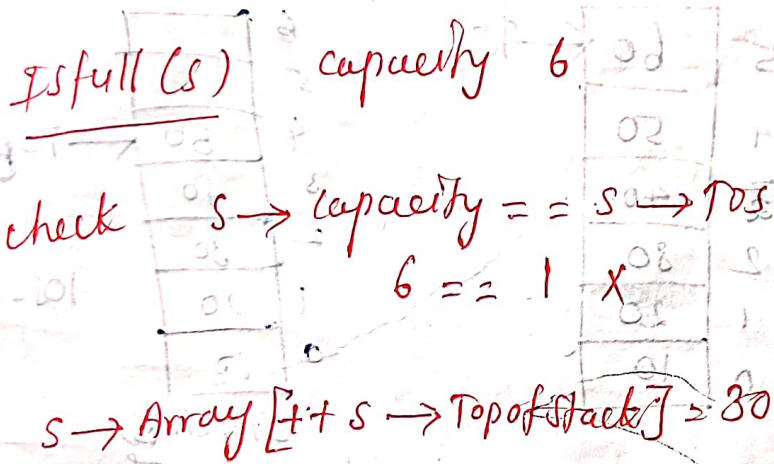 Isfull (s) capacity 6
check s → capacity == s → TOS
6 == 1 X
s → Array [++ s → TopofStack] = 30